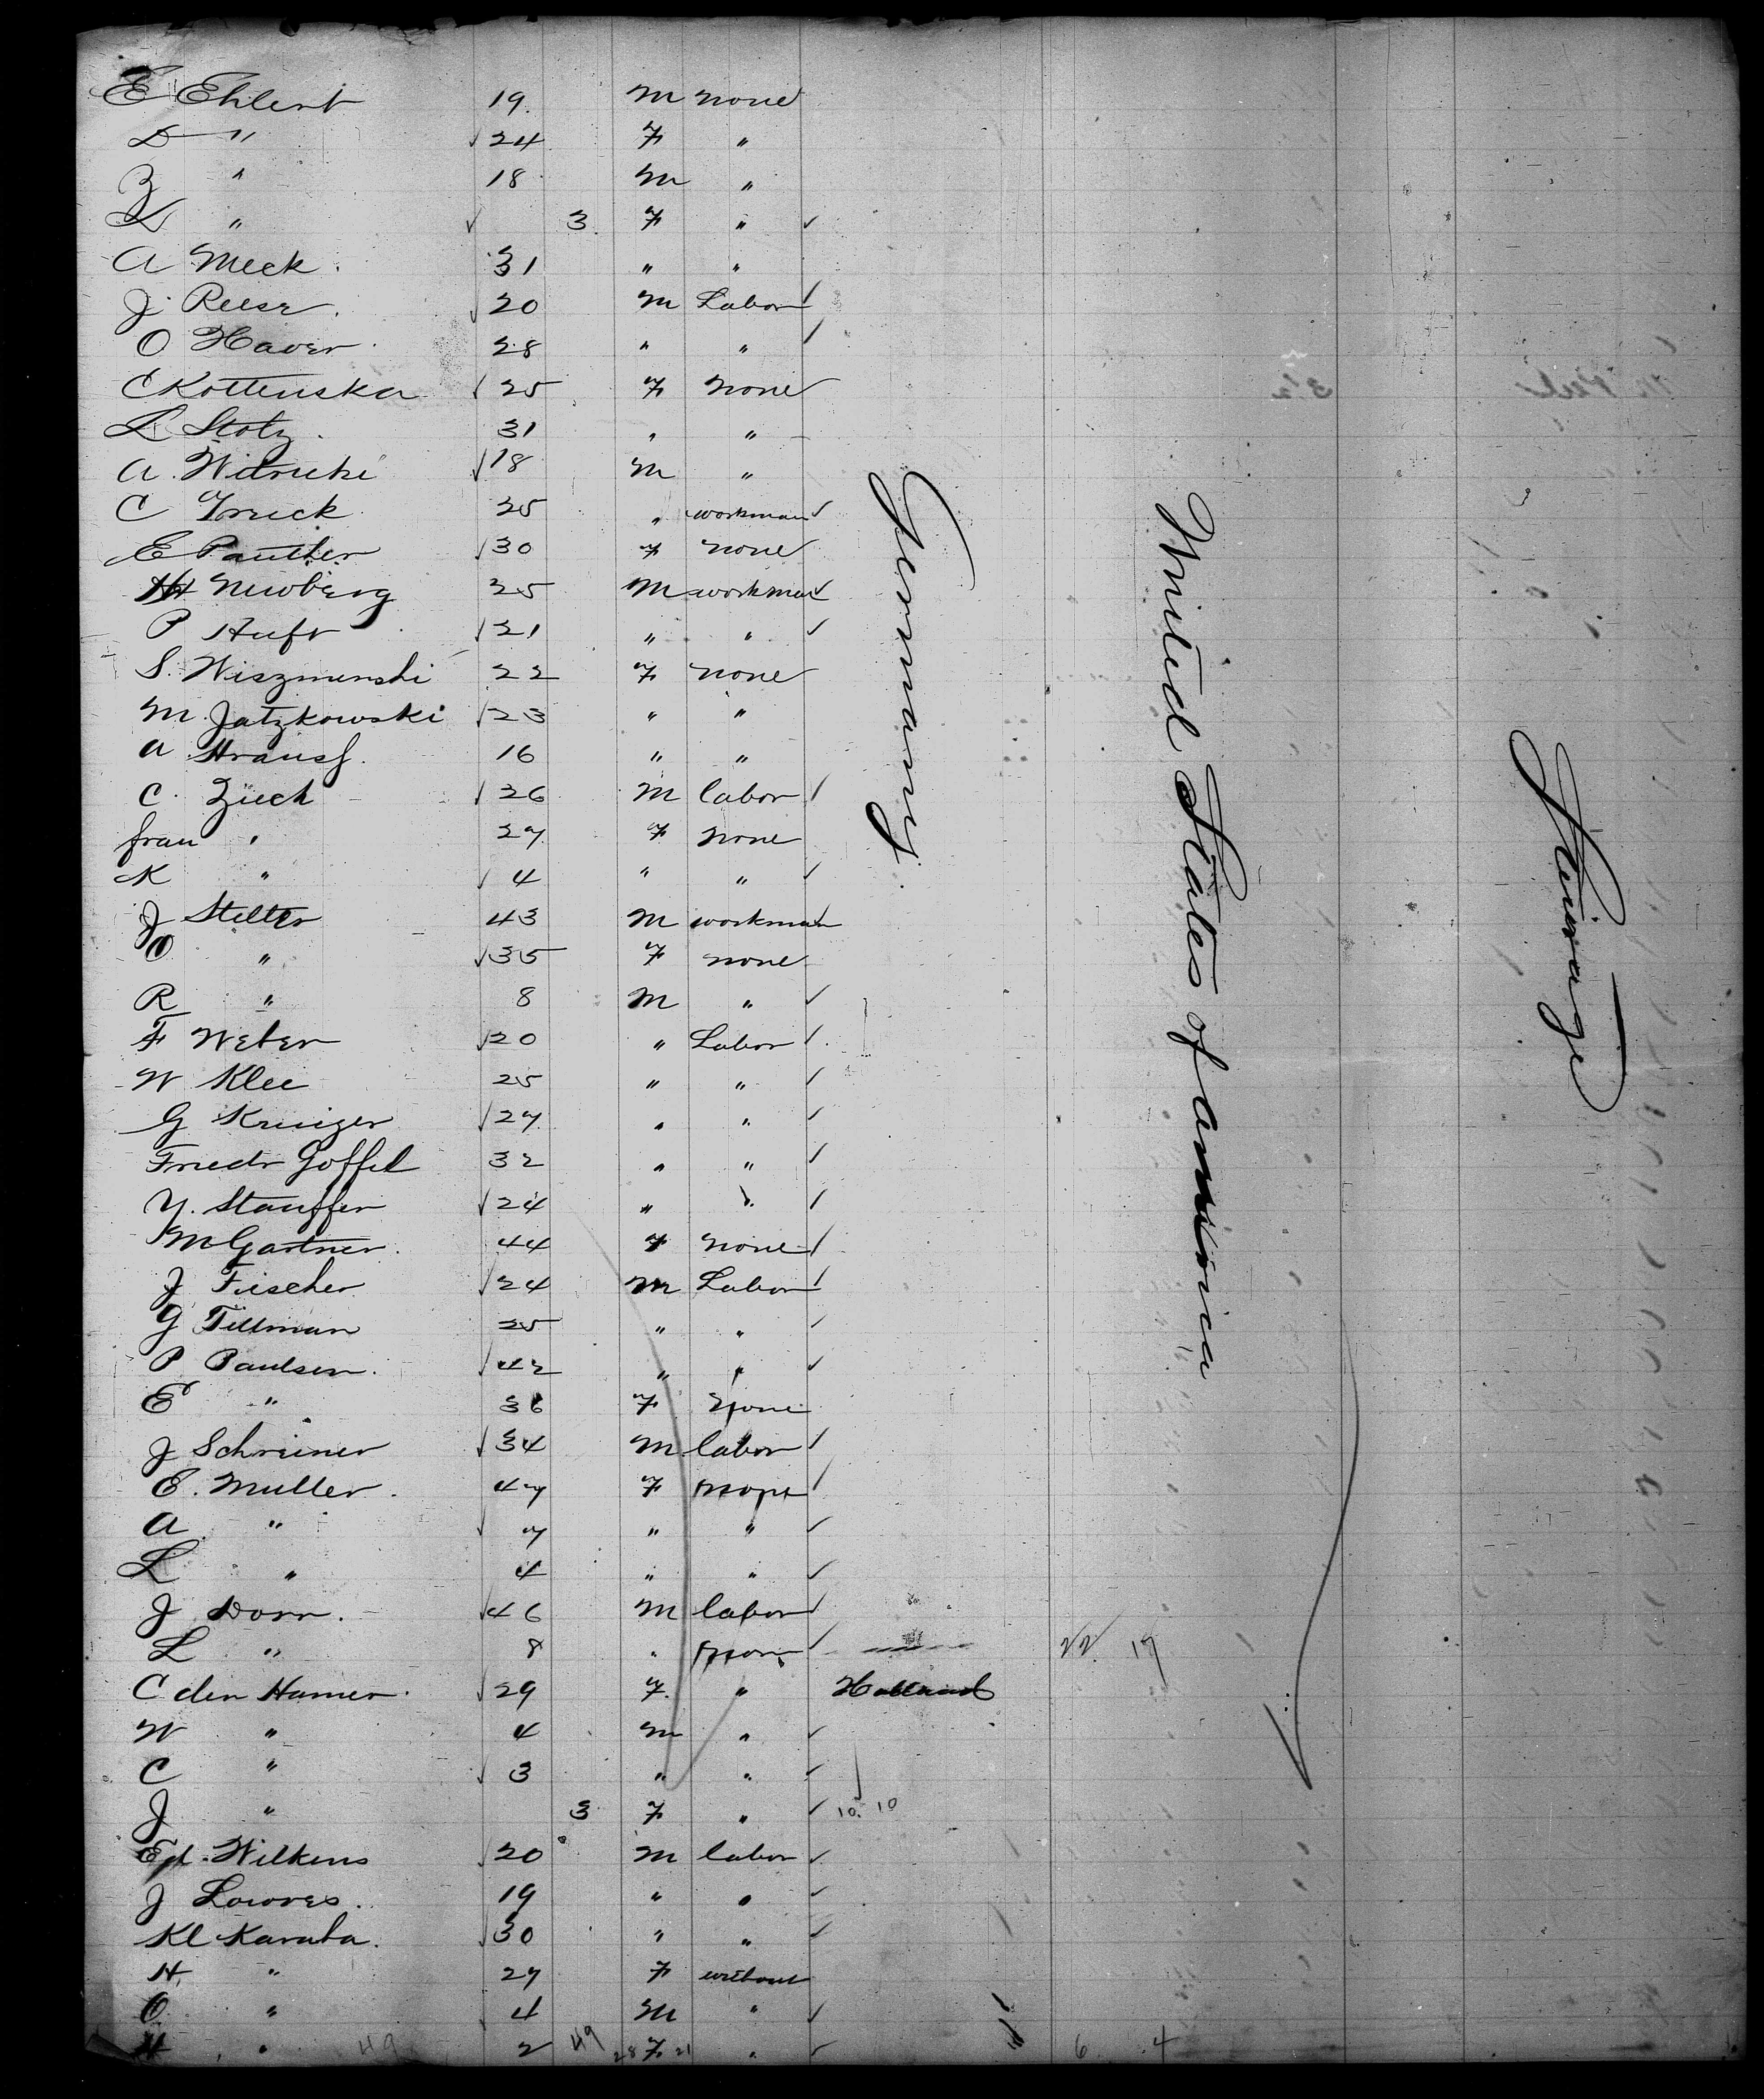 E Ehlert 19. M none
D " 24 F "
Z " 18 M "
L " 3 F "
A Meck. 31 " "
J. Reese. 20 M Labor
O Haver. 28 " "
C Kottenska 25 F none
L Stolz. 31 " "
A. Witricki 18 M "
C Treick 25 " workman
E Panther 30 F none
H Newberg 25 M workman
P Huft 21 " "
S. Wiszmenski 22 F none
M. Jatzkowski 23 " "
A Strauss. 16 " "
C. Ziech 26 M labor
frau " 27 F none
K " 4 " "
J Stelter 43 M workman
O " 35 F none
R " 8 M "
F Weber 20 " Labor
W Klee 25 " "
G Kruizer 27 " "
Friedr Goffel 32 " "
Y. Stauffer 24 " "
M Gartner. 44 F none
J Fischer 24 M Labor
G Tillman 25 " "
P Paulsen. 42 " "
E " 36 F none
J Schreiner 34 M labor
E. Muller. 47 F none
A " 7 " "
L " 4 " "
J Dorn. 46 M labor
L " 8 " none 22 17
C den Hamer. 29 F. " Holland
W " 4 M "
C " 3 " "
J " 3 F " 10. 10
Ed. Wilkens 20 M labor
J Lowres. 19 " "
Kl Karaba. 30 " "
H. " 27 F without
O " 4 M "
H " 2 49 28 F 21 " 6 4
Germany.
United States of America
Steerage